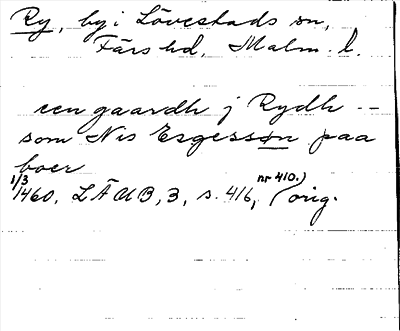 Ry, by i Lövestads sn,
Färs hd, Malm. l.
een gaardh j Rydh --
som Nis Esgessøn paa
boer
1/3 1460. LÄUB, 3, s. 416, nr 410.) (orig.